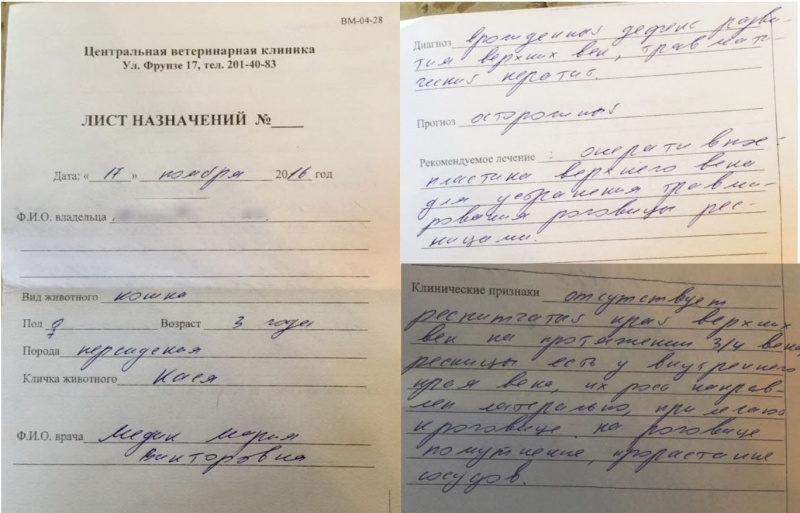 ВМ-04-28
Центральная ветеринарная клиника
Ул. Фрунзе 17, тел. 201-40-83
ЛИСТ НАЗНАЧЕНИЙ №____
Дата: «17» ноября 2016 год
Ф.И.О. владельца
Вид животного кошка
Пол ♀ Возраст 3 года
Порода персидская
Кличка животного Кася
Ф.И.О. врача Медик Мария
Викторовна
Диагноз врожденный дефект разви-
тия верхних век, травмати-
ческий кератит.
Прогноз осторожный
Рекомендуемое лечение : оперативная
пластика верхнего века
для устранения травми-
рования роговицы рес-
ницами.
Клинические признаки отсутствует
реснитчатый край верхних
век на протяжении 3/4 века,
ресницы есть у внутреннего
края века, их рост направ-
лен латерально, прилегают
к роговице. на роговице
помутнение, прорастание
сосудов.